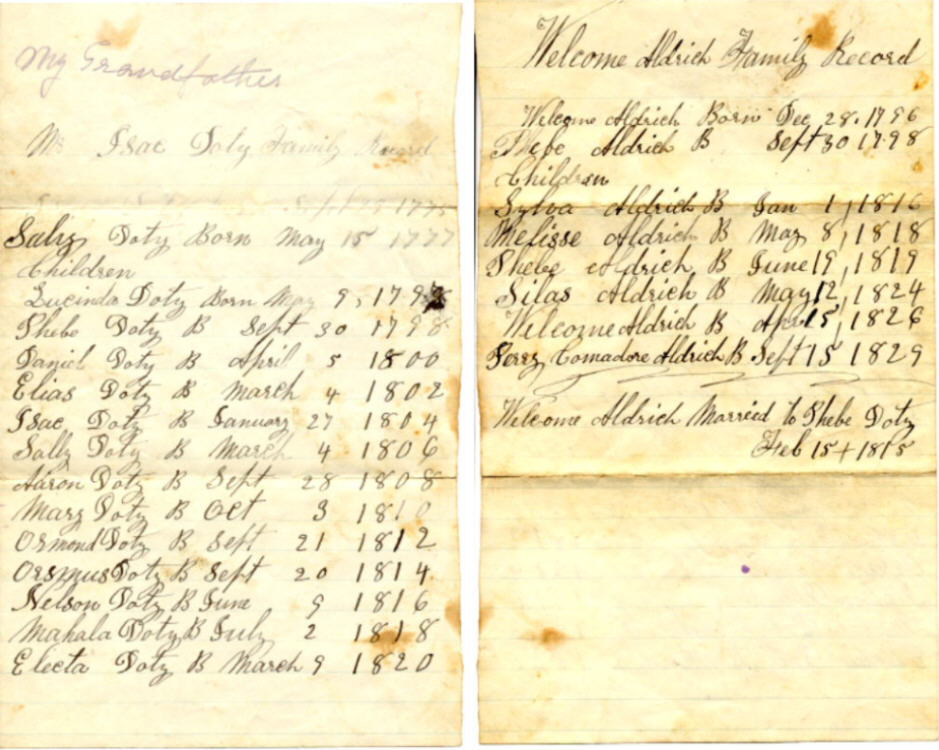 My Grandfather
Mr Isac Doty Family Record
Sept 15 1775
Sally Doty Born May 15 1777
Children
Lucinda Doty Born May 9, 179
Phebe Doty B Sept 30 1798
Daniel Doty B April 5 1800
Elias Doty B March 4 1802
Isac Doty B January 27 1804
Sally Doty B March 4 1806
Aaron Doty B Sept 28 1808
Mary Doty B Oct 3 1810
Ormond Doty B Sept 21 1812
Orsmus Doty B Sept 20 1814
Nelson Doty B June 9 1816
Mahala Doty B July 2 1818
Electa Doty B March 9 1820
Welcome Aldrich Family Record
Welcome Aldrich Born Dec 28. 1796
Phebe Aldrich B Sept 30 1798
Children
Sylva Aldrich B Jan 1, 1816
Melisse Aldrich B May 8, 1818
Phebe Aldrich, B June 19, 1819
Silas Aldrich B May 12, 1824
Welcome Aldrich B Apr 15, 1826
Perry Comadore Aldrich B Sept 15 1829
Welcome Aldrich Married to Phebe Doty
Feb 15 + 1815